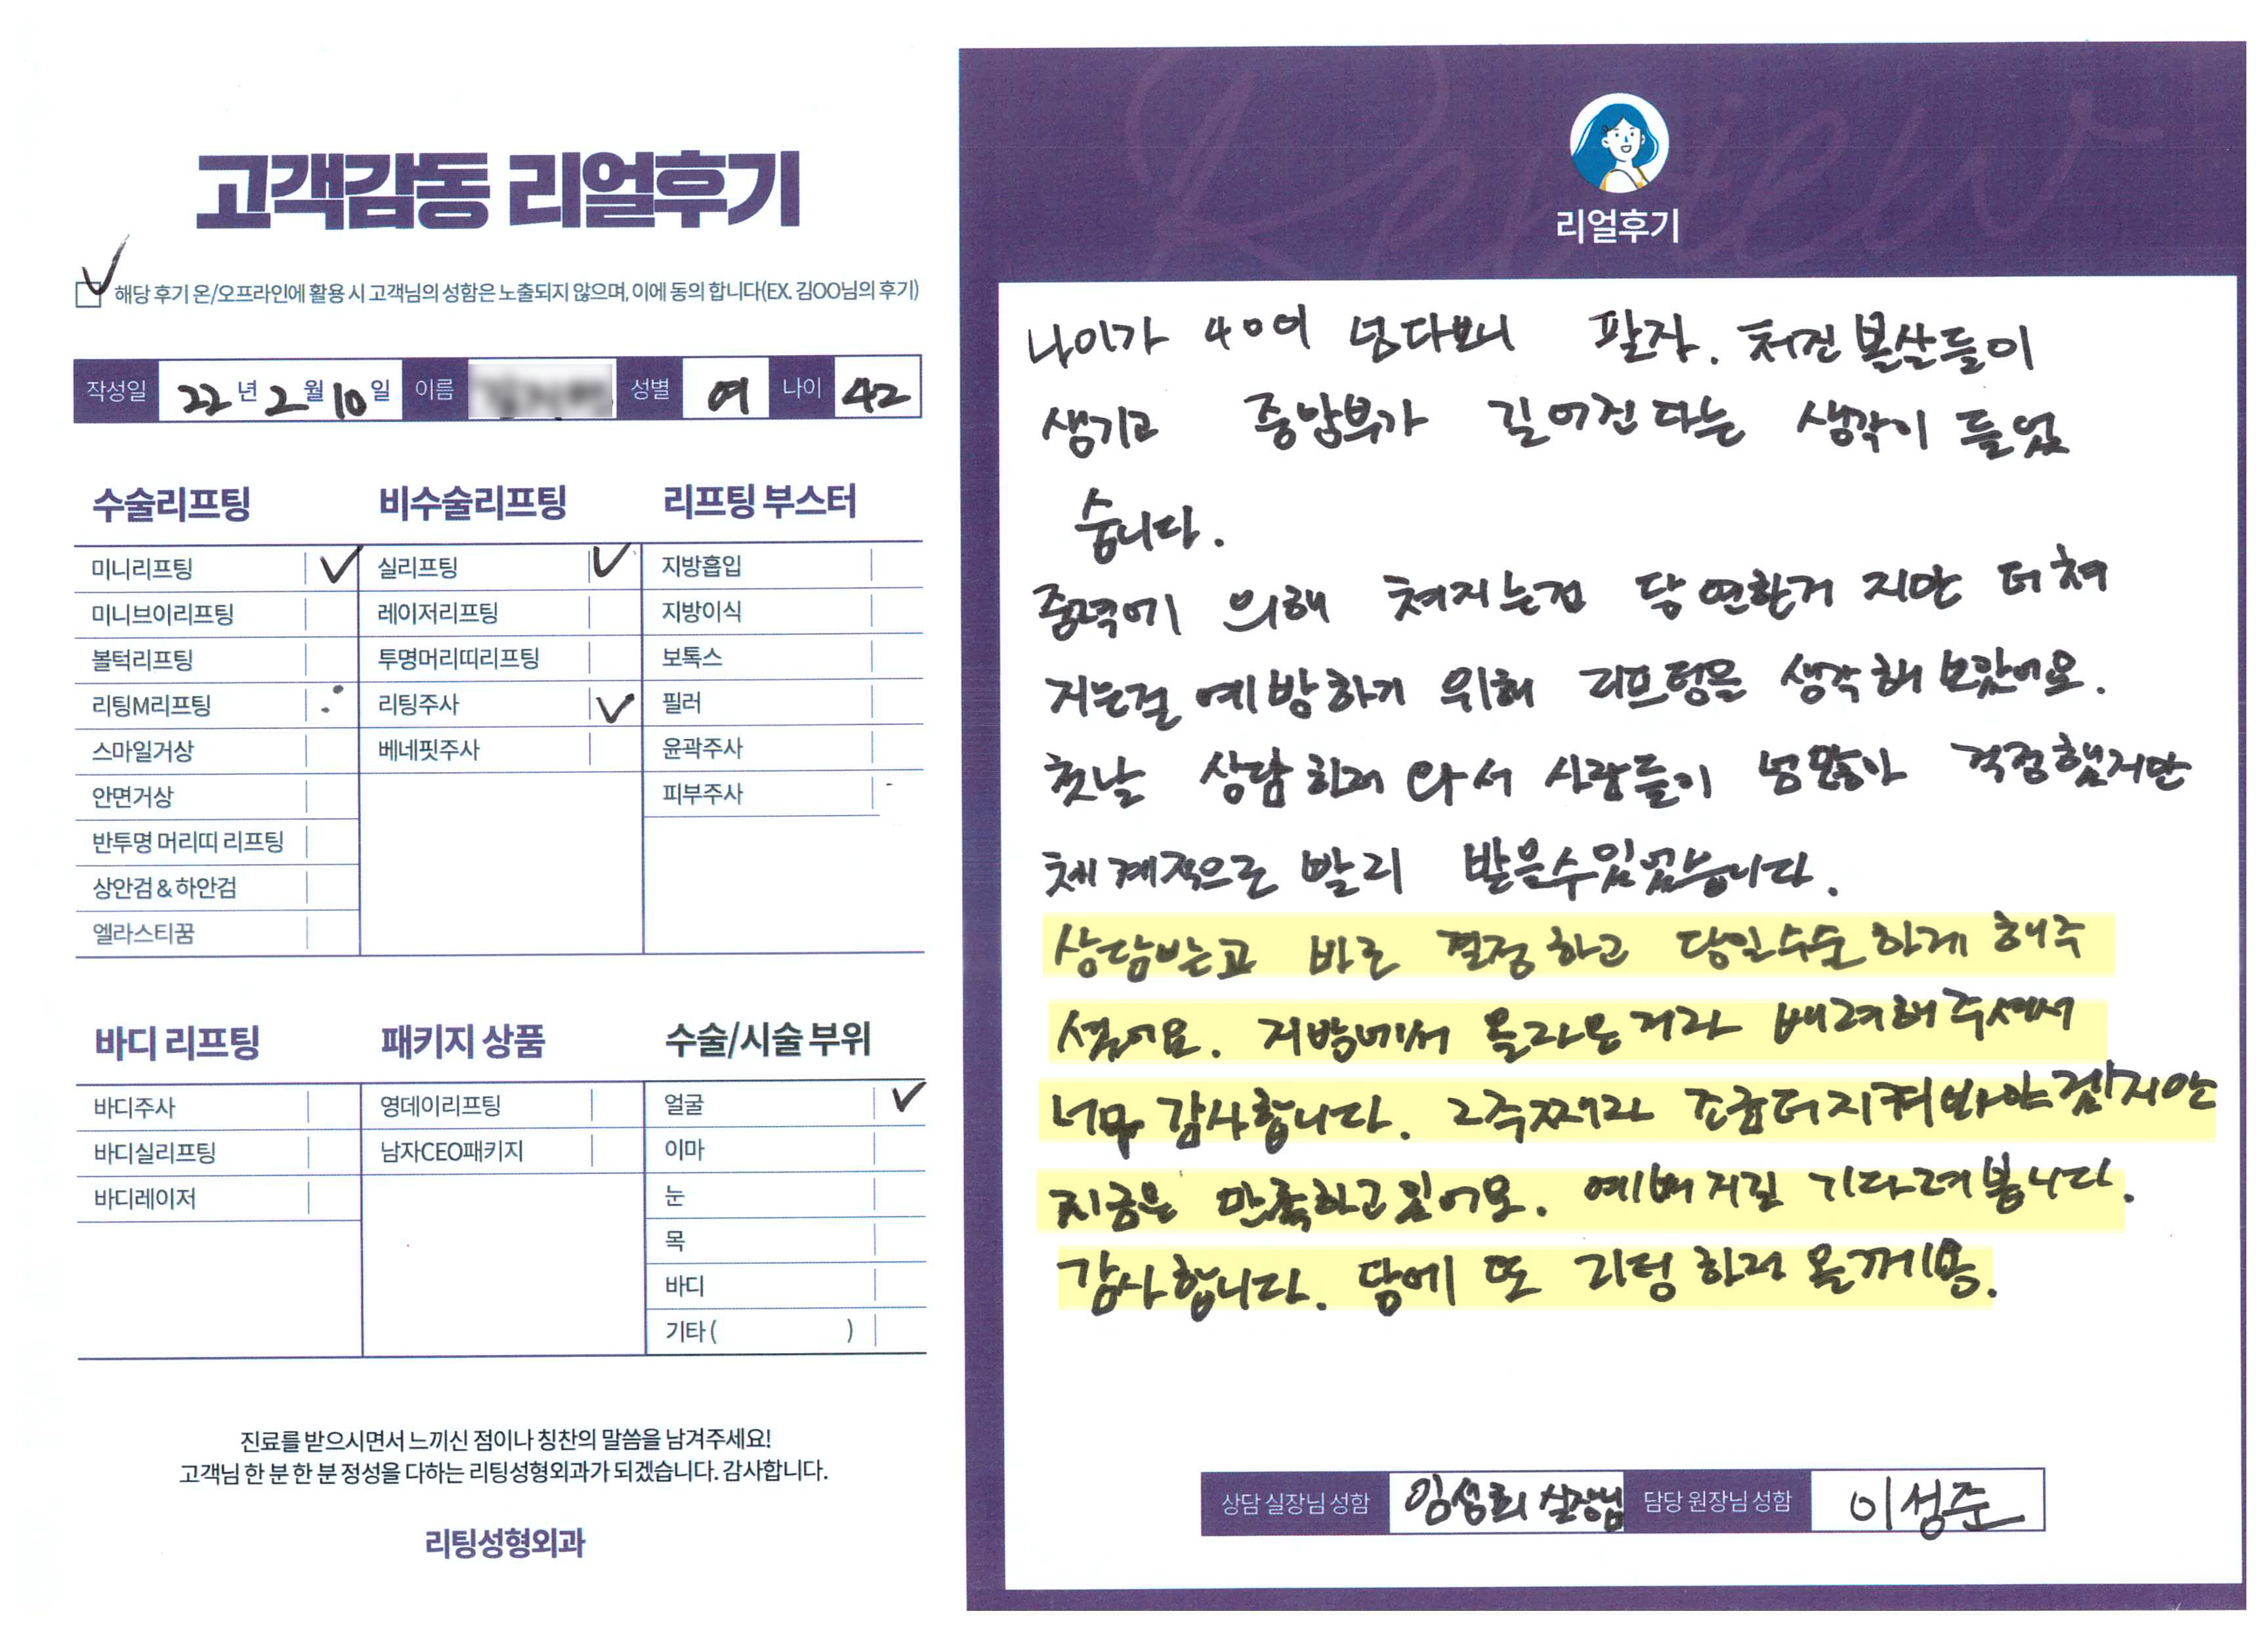 고객감동 리얼후기
해당 후기 온/오프라인에 활용 시 고객님의 성함은 노출되지 않으며, 이에 동의 합니다(EX. 김OO님의 후기)
작성일 22년 2월 10일 이름 성별 여 나이 42
수술리프팅
미니리프팅
미니브이리프팅
볼턱리프팅
리팅M리프팅
스마일거상
안면거상
반투명 머리띠 리프팅
상안검&하안검
엘라스티꿈
비수술리프팅
실리프팅
레이저리프팅
투명머리띠리프팅
리팅주사
베네핏주사
리프팅 부스터
지방흡입
지방이식
보톡스
필러
윤곽주사
피부주사
바디 리프팅
바디주사
바디실리프팅
바디레이저
패키지 상품
영데이리프팅
남자CEO패키지
수술/시술 부위
얼굴
이마
눈
목
바디
기타 ( )
진료를 받으시면서 느끼신 점이나 칭찬의 말씀을 남겨주세요!
고객님 한 분 한 분 정성을 다하는 리팅성형외과가 되겠습니다. 감사합니다.
리팅성형외과
Review
리얼후기
나이가 40이 넘다보니 팔자. 처진볼살들이
생기고 중암부가 길어진다는 생각이 들었
습니다.
중력에 의해 쳐지는건 당연한거 지만 더 쳐
지는걸 예방하기 위해 리프팅을 생각해 보았어요.
첫날 상담하러 와서 사람들이 넘많아 걱정했지만
체계적으로 빨리 받을수있었습니다.
상담받는고 바로 결정하고 당일수술하게 해주
셨어요. 지방에서 올라온거라 배려해주셔서
너무 감사합니다. 2주째라 조금더지켜봐야겠지만
지금은 만족하고있어요. 예뻐지길 기다려봅니다.
감사합니다. 담에 또 리팅하러 올께용.
상담 실장님 성함 임성희 실장님 담당 원장님 성함 이성준